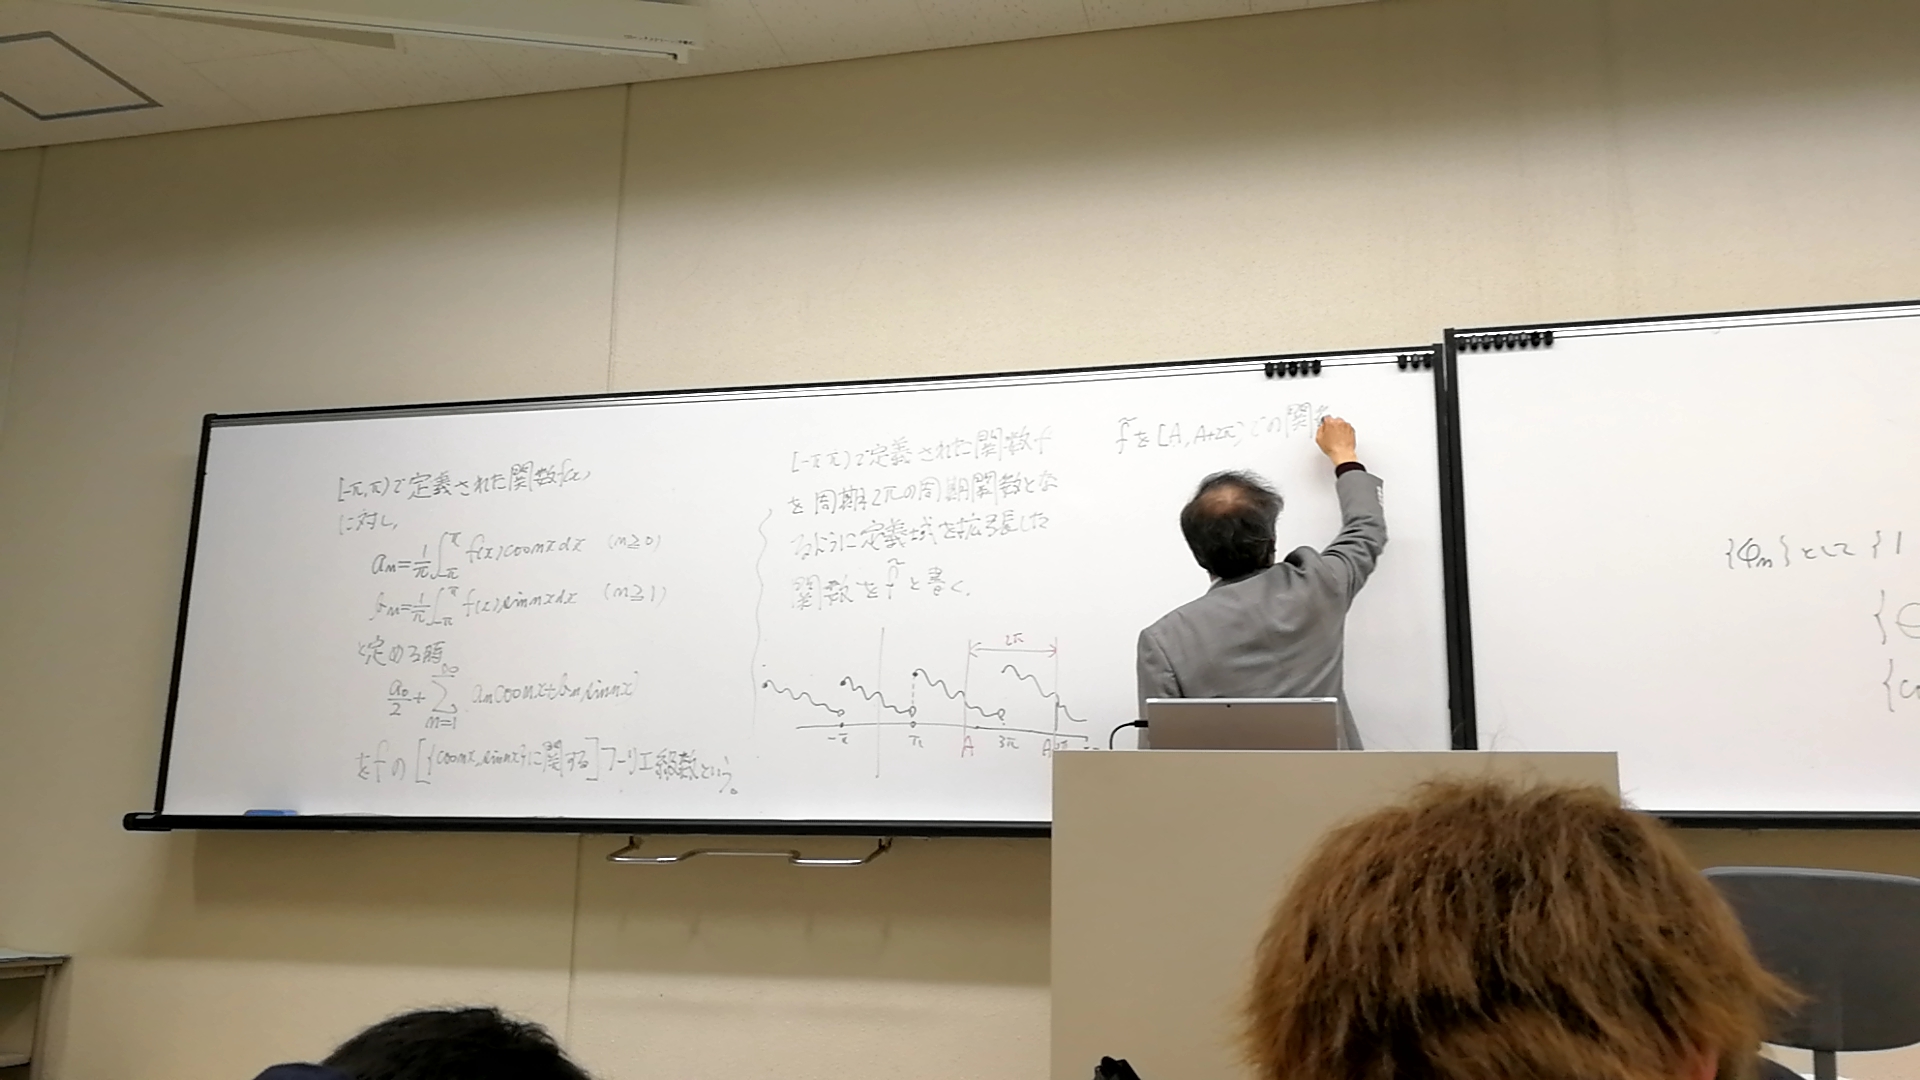 [-π,π)で定義された関数f(x)
に対し,
an=1/π∫_{-π}^{π} f(x)cosnxdx (n≧0)
bn=1/π∫_{-π}^{π} f(x)sinnxdx (n≧1)
と定める時
a0/2+∑_{n=1}^{∞} ancosnx+bnsinnx
をfの[{cosnx,sinnx}に関する]フーリエ級数という。
[-π π)で定義された関数f
を周期2πの周期関数とな
るように定義域を拡張した
関数をf̃と書く.
2π
-π π A 3π A
f̃を[A,A+2π)での関
{φn}として{1